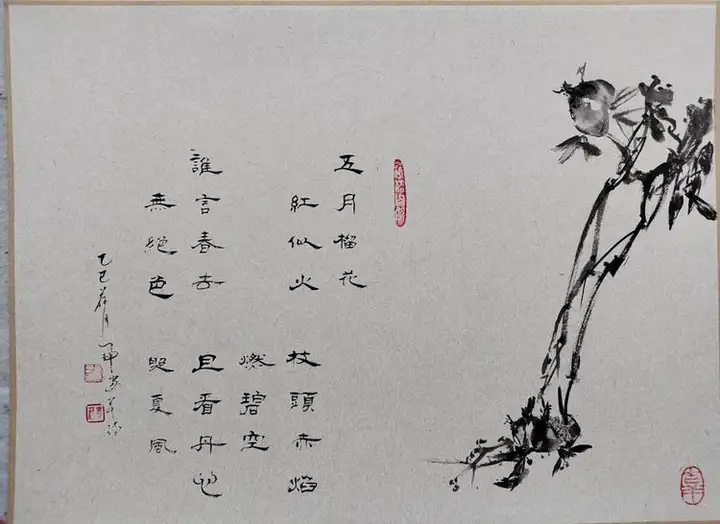 五月榴花
紅似火
杖頭赤焰
燃碧空
誰言春去
無絕色
且看丹心
照夏風
乙巳